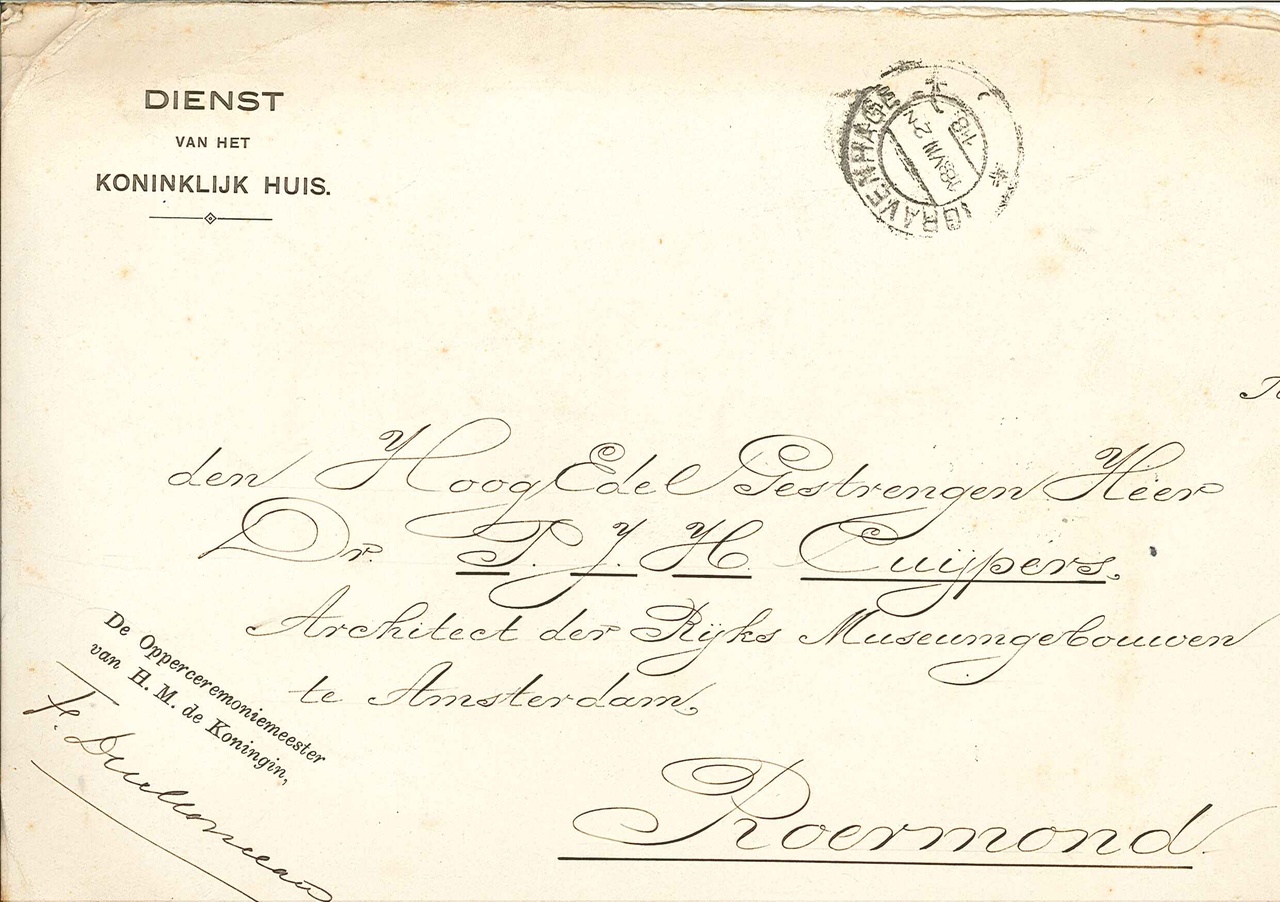 DIENST
VAN HET
KONINKLIJK HUIS.
GRAVENHAGE
18 VIII 2 N
18
den HoogEdel Gestrengen Heer
Dr. P. J. H. Cuijpers,
Architect der Rijks Museumgebouwen
te Amsterdam,
Roermond.
De Opperceremoniemeester
van H. M. de Koningin,